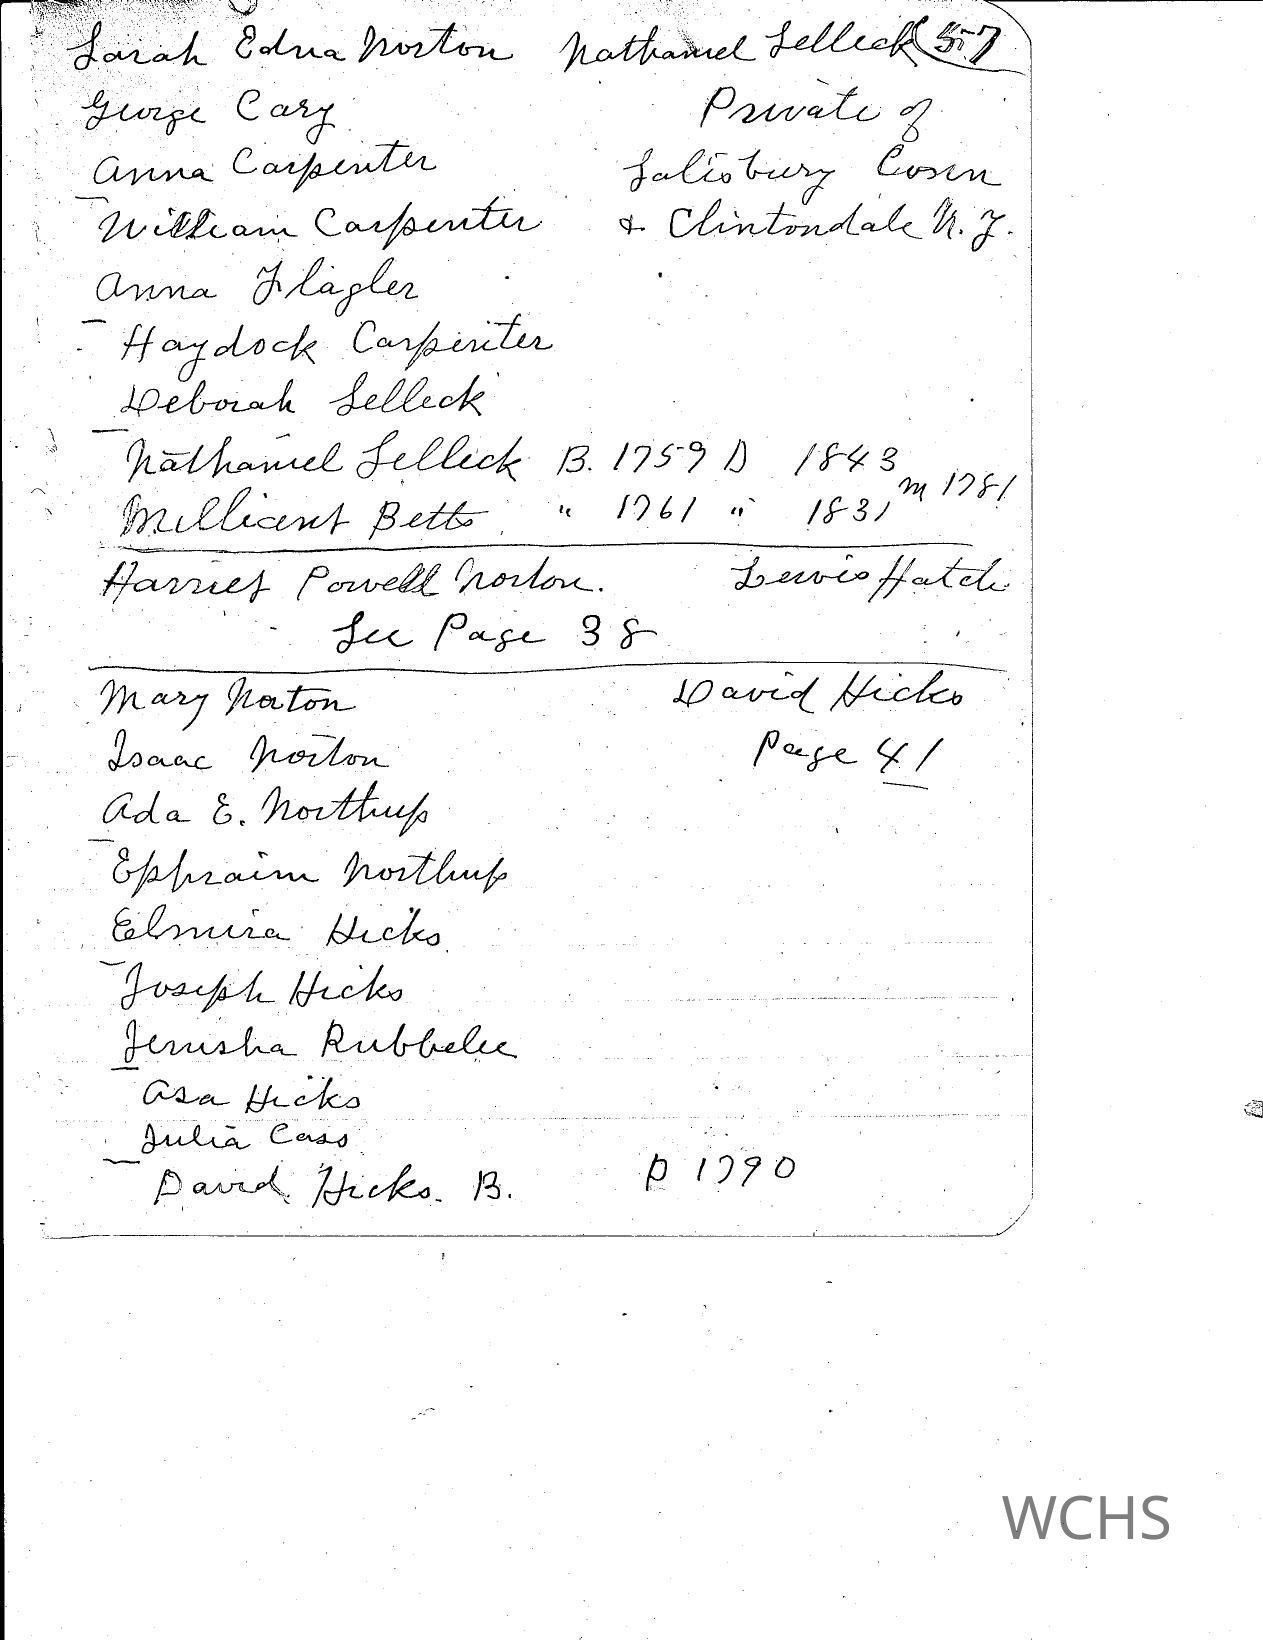 Sarah Edna Norton Nathaniel Selleck 57
George Cary Private of
Anna Carpenter Salisbury Conn
William Carpenter & Clintondale N.Y.
Anna Flagler
Haydock Carpenter
Deborah Selleck
Nathaniel Selleck B. 1759 D 1843
m 1781
Millicent Betts " 1761 " 1831
Harriet Powell Norton. Lewis Hatch
See Page 38
Mary Norton David Hicks
Isaac Norton Page 41
Ada E. Northrup
Ephraim Northrup
Elmira Hicks
Joseph Hicks
Jerusha Rubbelee
Asa Hicks
Julia Cass
David Hicks. B. D 1790
WCHS